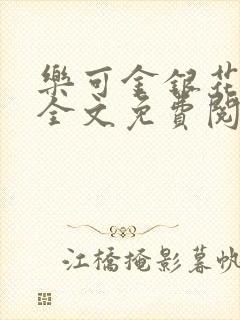 樂可金銀花
全文免費閱
江橋掩影暮帆